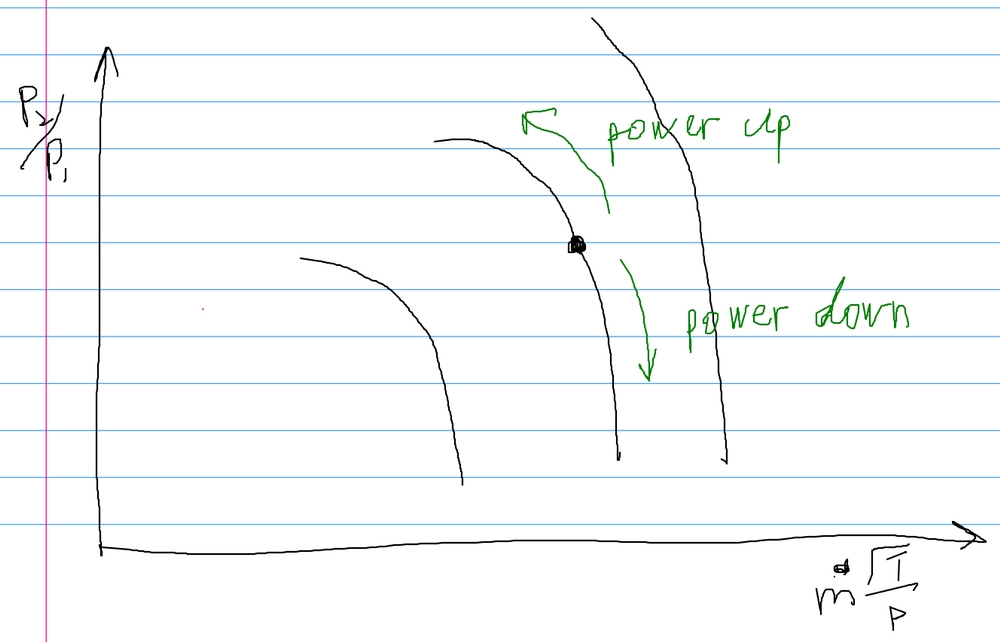 P₂/P₁
power up
power down
ṁ√T/P